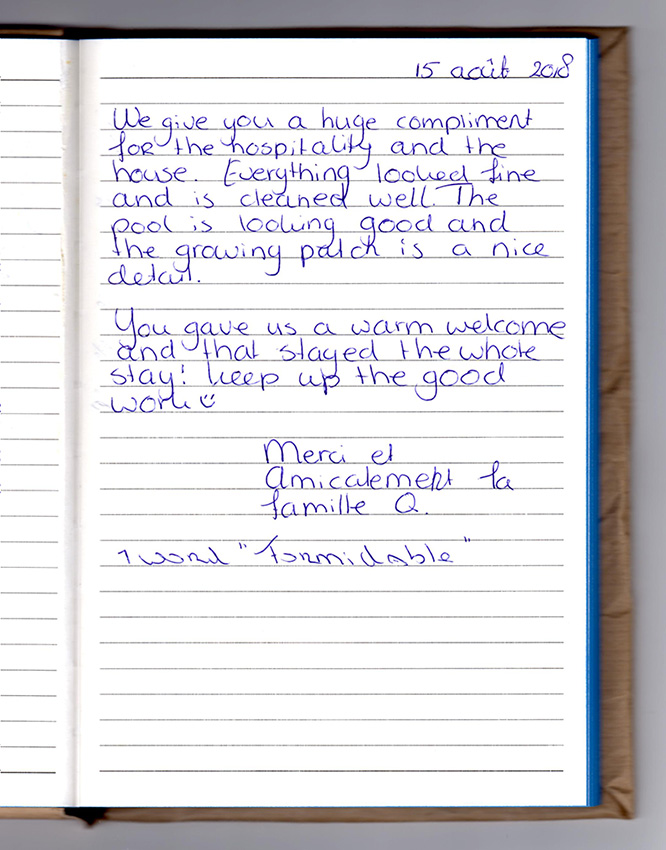 15 août 2018
We give you a huge compliment
for the hospitality and the
house. Everything looked fine
and is cleaned well. The
pool is looking good and
the growing patch is a nice
detail.
You gave us a warm welcome
and that stayed the whole
stay! keep up the good
work ☺
Merci et
Amicalement la
famille Q.
1 word "Formidable"